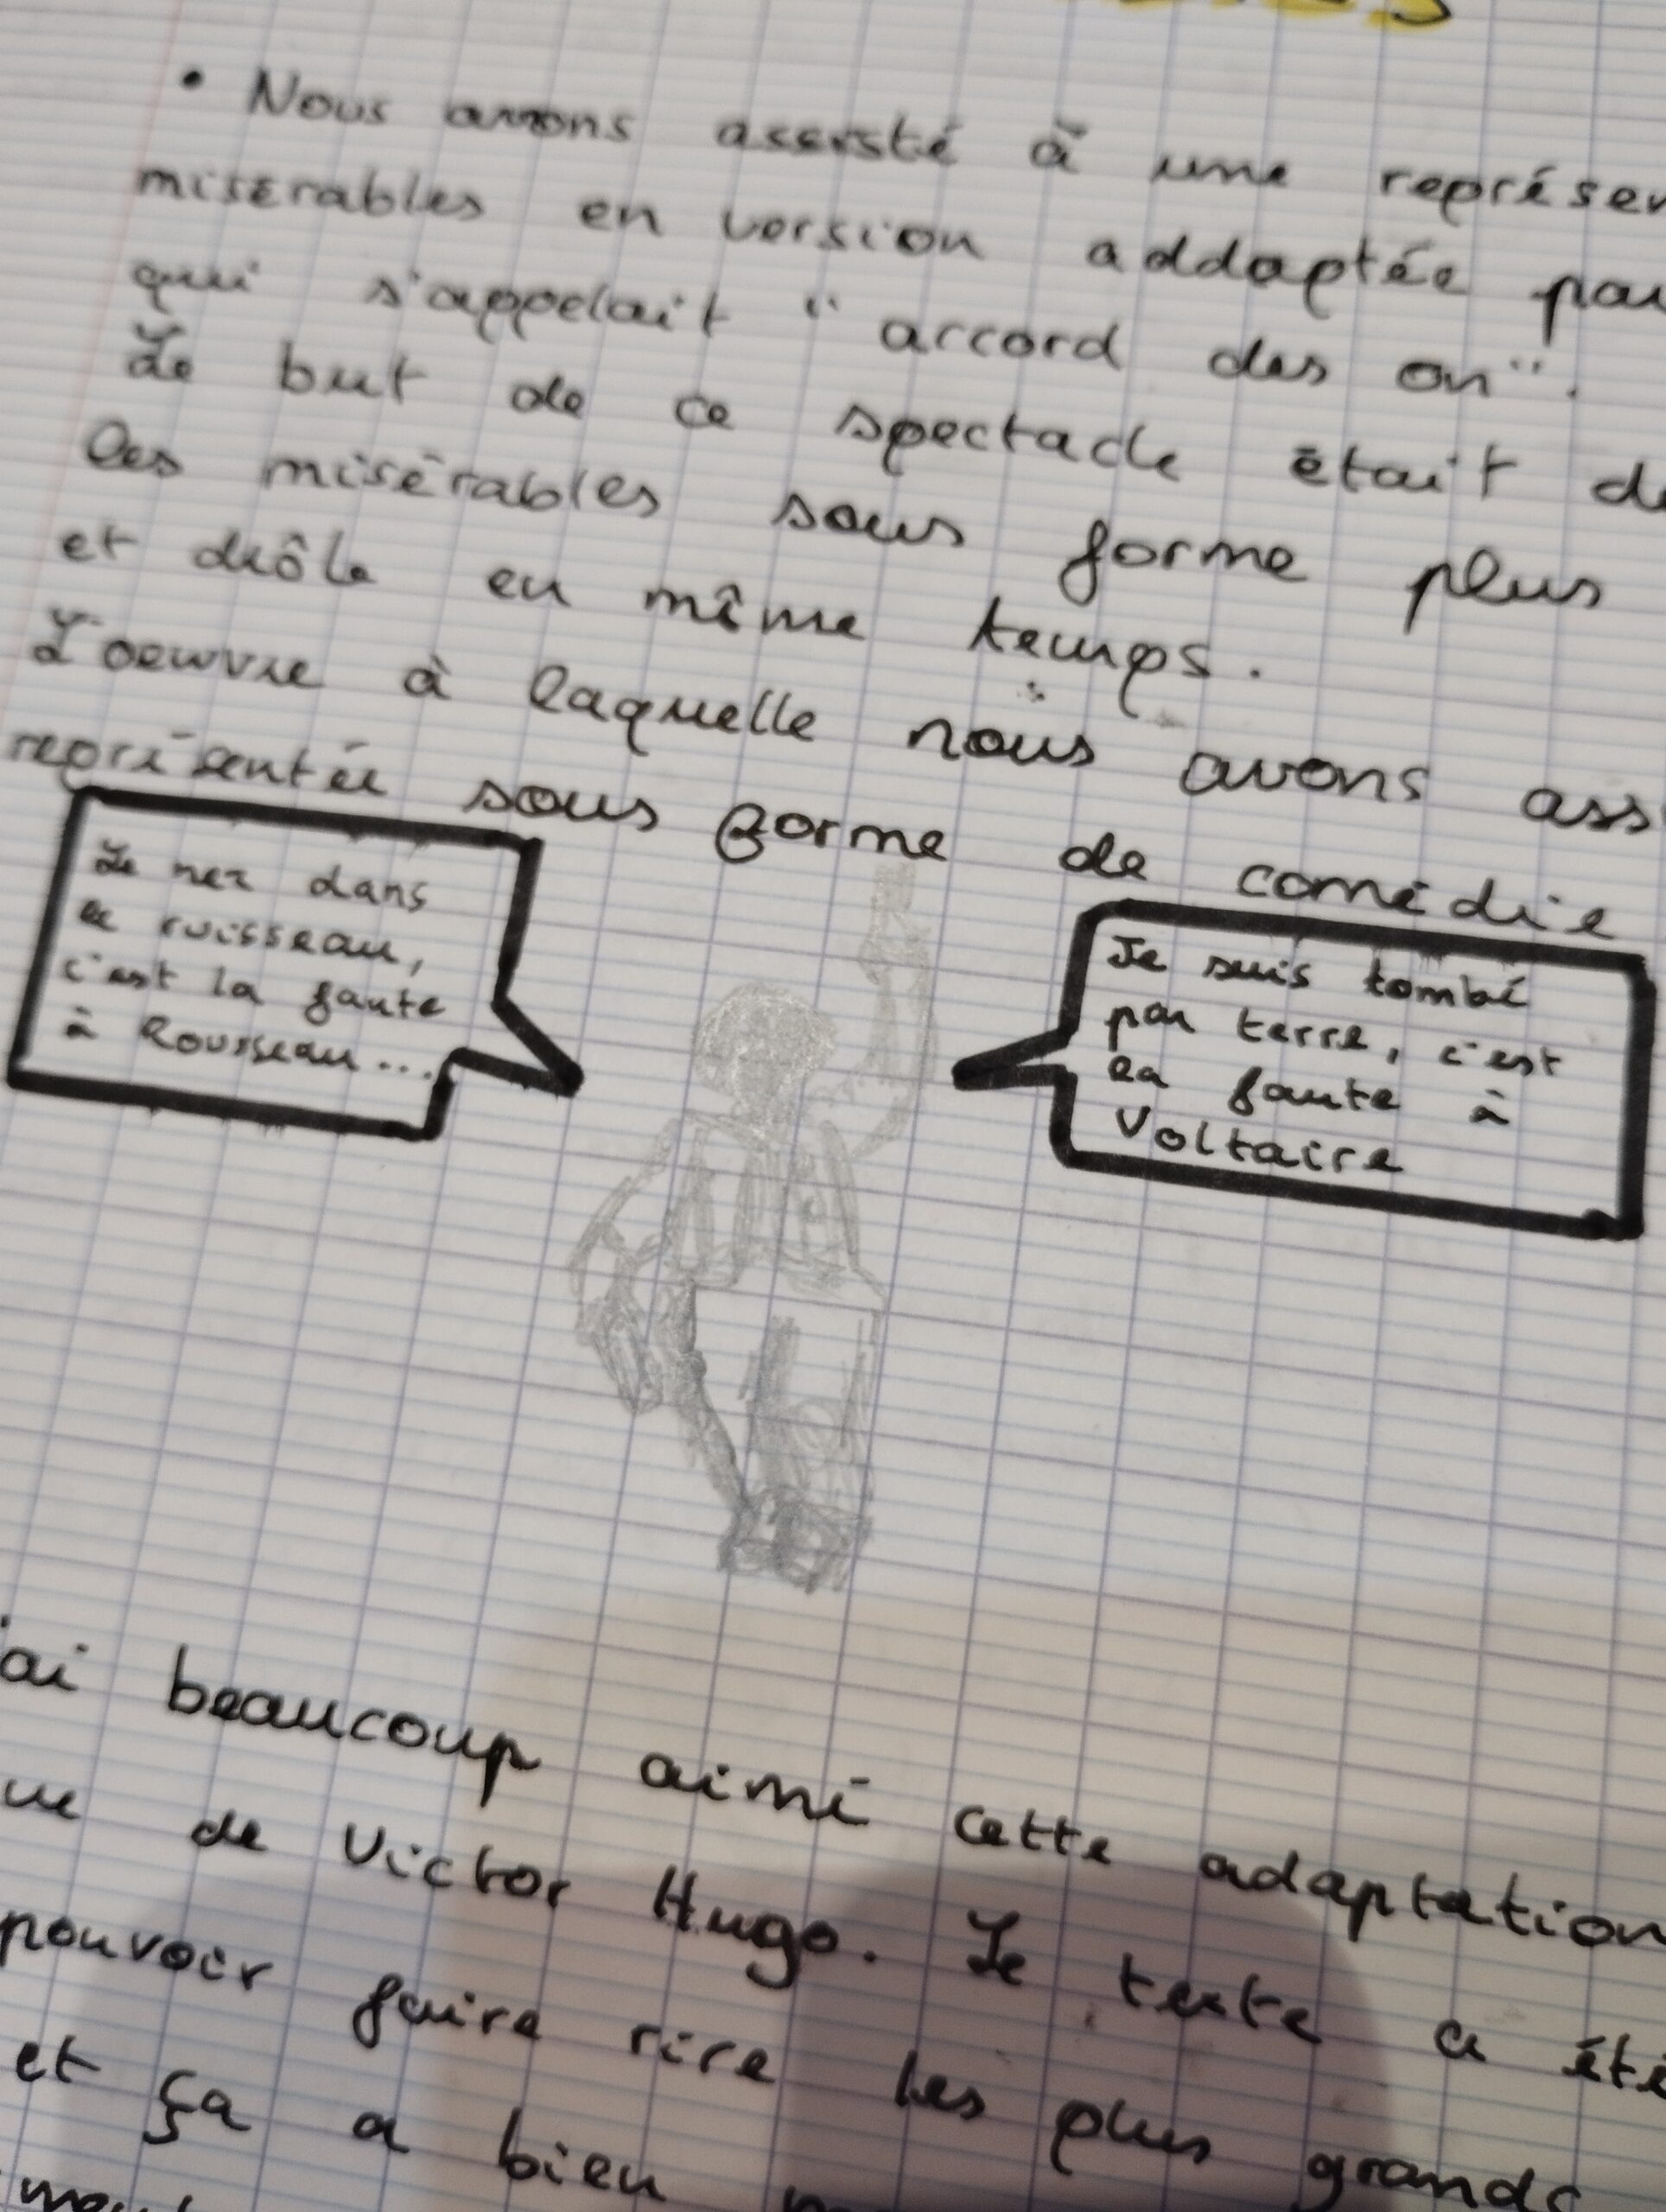 • Nous avons assisté à une représen
miserables en version addaptée par
qui s'appelait "accord des on".
Le but de ce spectacle était de
les misérables sous forme plus
et drôle en même temps.
L'oeuvre à laquelle nous avons ass
représentée sous forme de comédie
Le nez dans
le ruisseau,
c'est la faute
à Rousseau...
Je suis tombé
par terre, c'est
la faute à
Voltaire
'ai beaucoup aimé cette adaptation
ue de Victor Hugo. Le texte a été
pouvoir faire rire les plus grands
et ça a bien